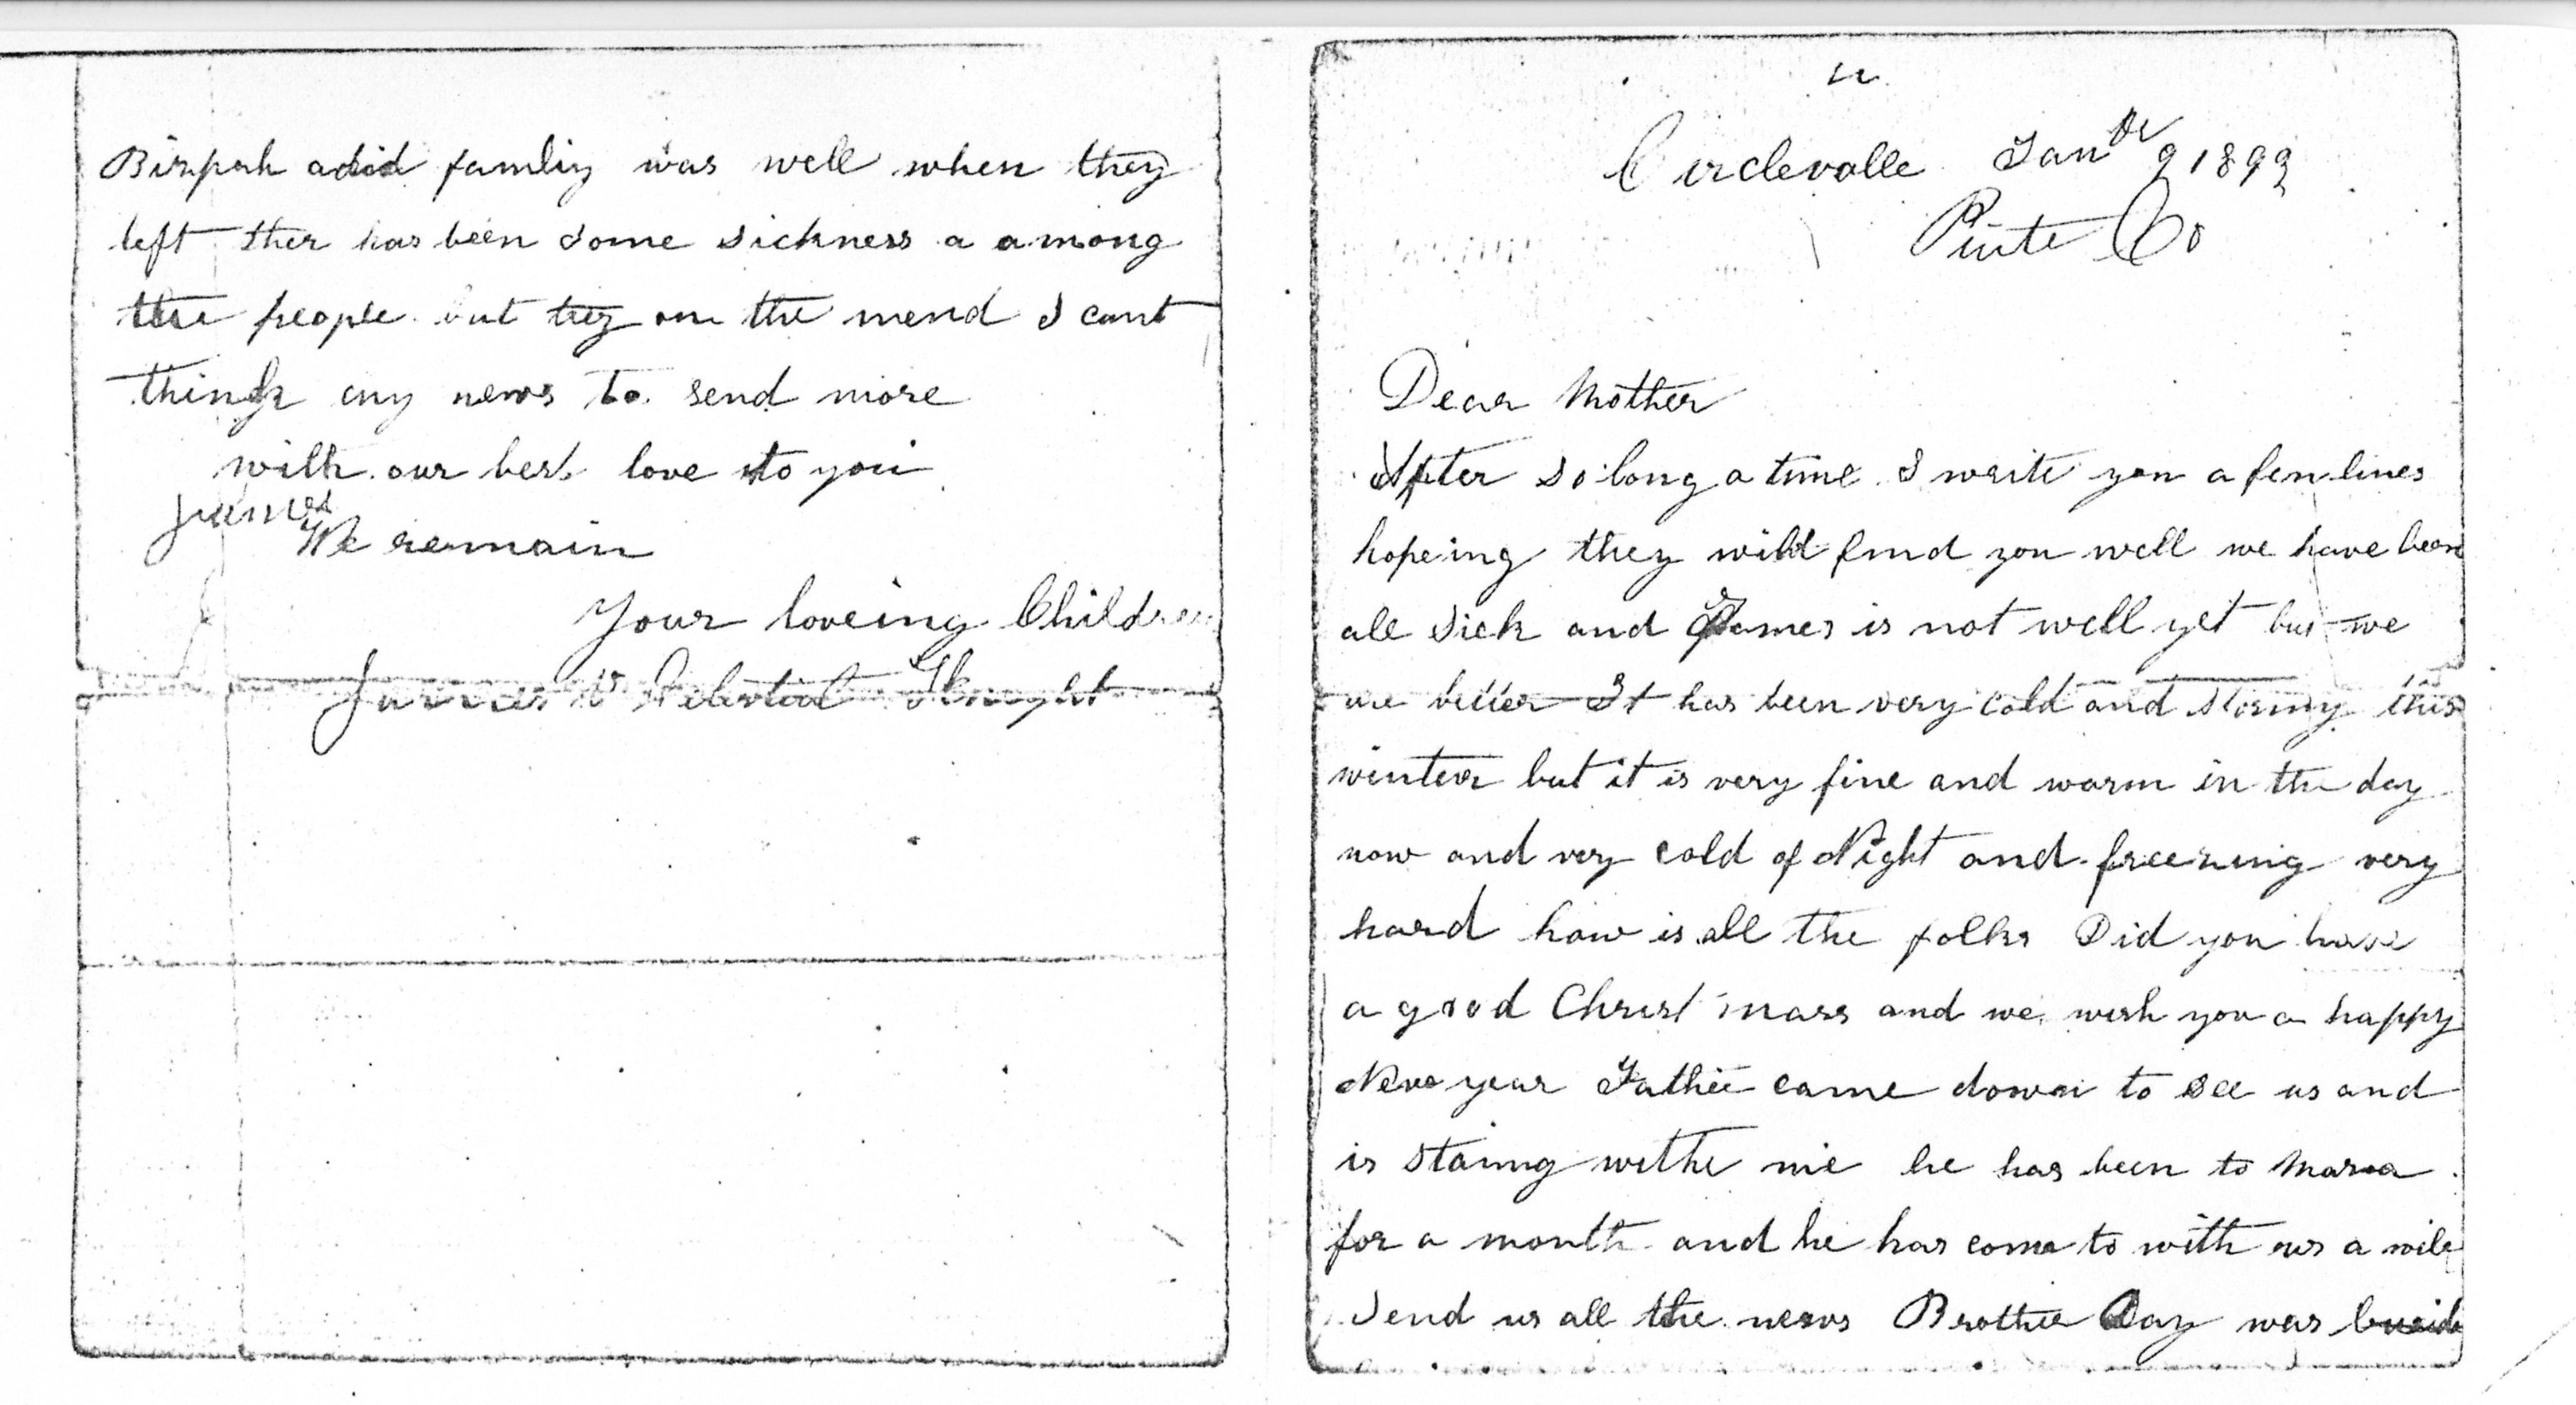 Circlevalle Janur 9 1893
Piute Co
Dear Mother
After so long a time I write you a few lines
hopeing they will find you well we have been
all sick and James is not well yet but we
are better It has been very cold and stormy this
winter but it is very fine and warm in the day
now and very cold of Night and freezing very
hard how is all the folks Did you have
a good Christ mass and we wish you a happy
New year Father came down to see us and
is staing withe me he has been to
for a month and he has come to with us a wile
Send us all the news Brother Day was
famliy was well when they
left ther has been some sickness a among
the people but tey on the mend I cant
think eny news to send more
with our best love to you
James
We remain
Your loveing Children
James